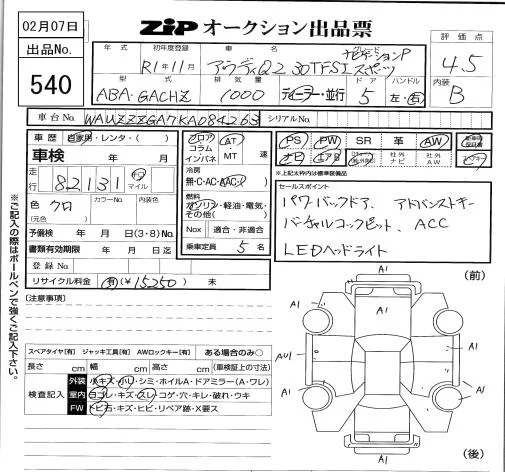 02月07日
ZIP オークション出品票
出品No.
540
評価点
4.5
内装
B
年式 初年度登録 車名 グレード
R1年11月 アウディQ2 30TFSI スポーツ
ナビゲーションP
型式 排気量 ドア ハンドル
ABA-GACHZ 1000 ディーラー・並行 5 左・右
車台No. WAUZZZGA7KA084263 シリアルNo.
車歴 自家用・レンタ・( )
車検 年 月
走行 82,131 km マイル
色 クロ (元色) カラーNo. 内装色
予備検 年 月 日(3・8)No.
書類有効期限 年 月 日迄
登録No.
リサイクル料金 有(¥15250) 未
フロア コラム インパネ
AT・MT 速
冷房
無・C・AC・AAC
燃料
ガソリン・軽油・電気・その他( )
Nox 適合・非適合
乗車定員 5 名
PS PW SR 革 AW
ナビ エアB 社外ナビ 社外AW
※上記太枠内は標準装備品
セールスポイント
パワーバックドア、アドバンストキー
バーチャルコックピット、ACC
LEDヘッドライト
[注意事項]
スペアタイヤ[有] ジャッキ工具[有] AWロックキー[有] ある場合のみ○
長さ cm 幅 cm 高さ cm (車検証上の寸法)
検査記入
外装 小キズ・小凹・シミ・ホイルA・ドアミラー(A・ワレ)
室内 ヨゴレ・キズ・スレ・コゲ・穴・キレ・破れ・ウキ
FW トビ石・キズ・ヒビ・リペア跡・X要ス
※ご記入の際はボールペンで強くご記入下さい。
(前)
A1
A1
A1
A1
AU1
A1
A1
A1
A1
(後)